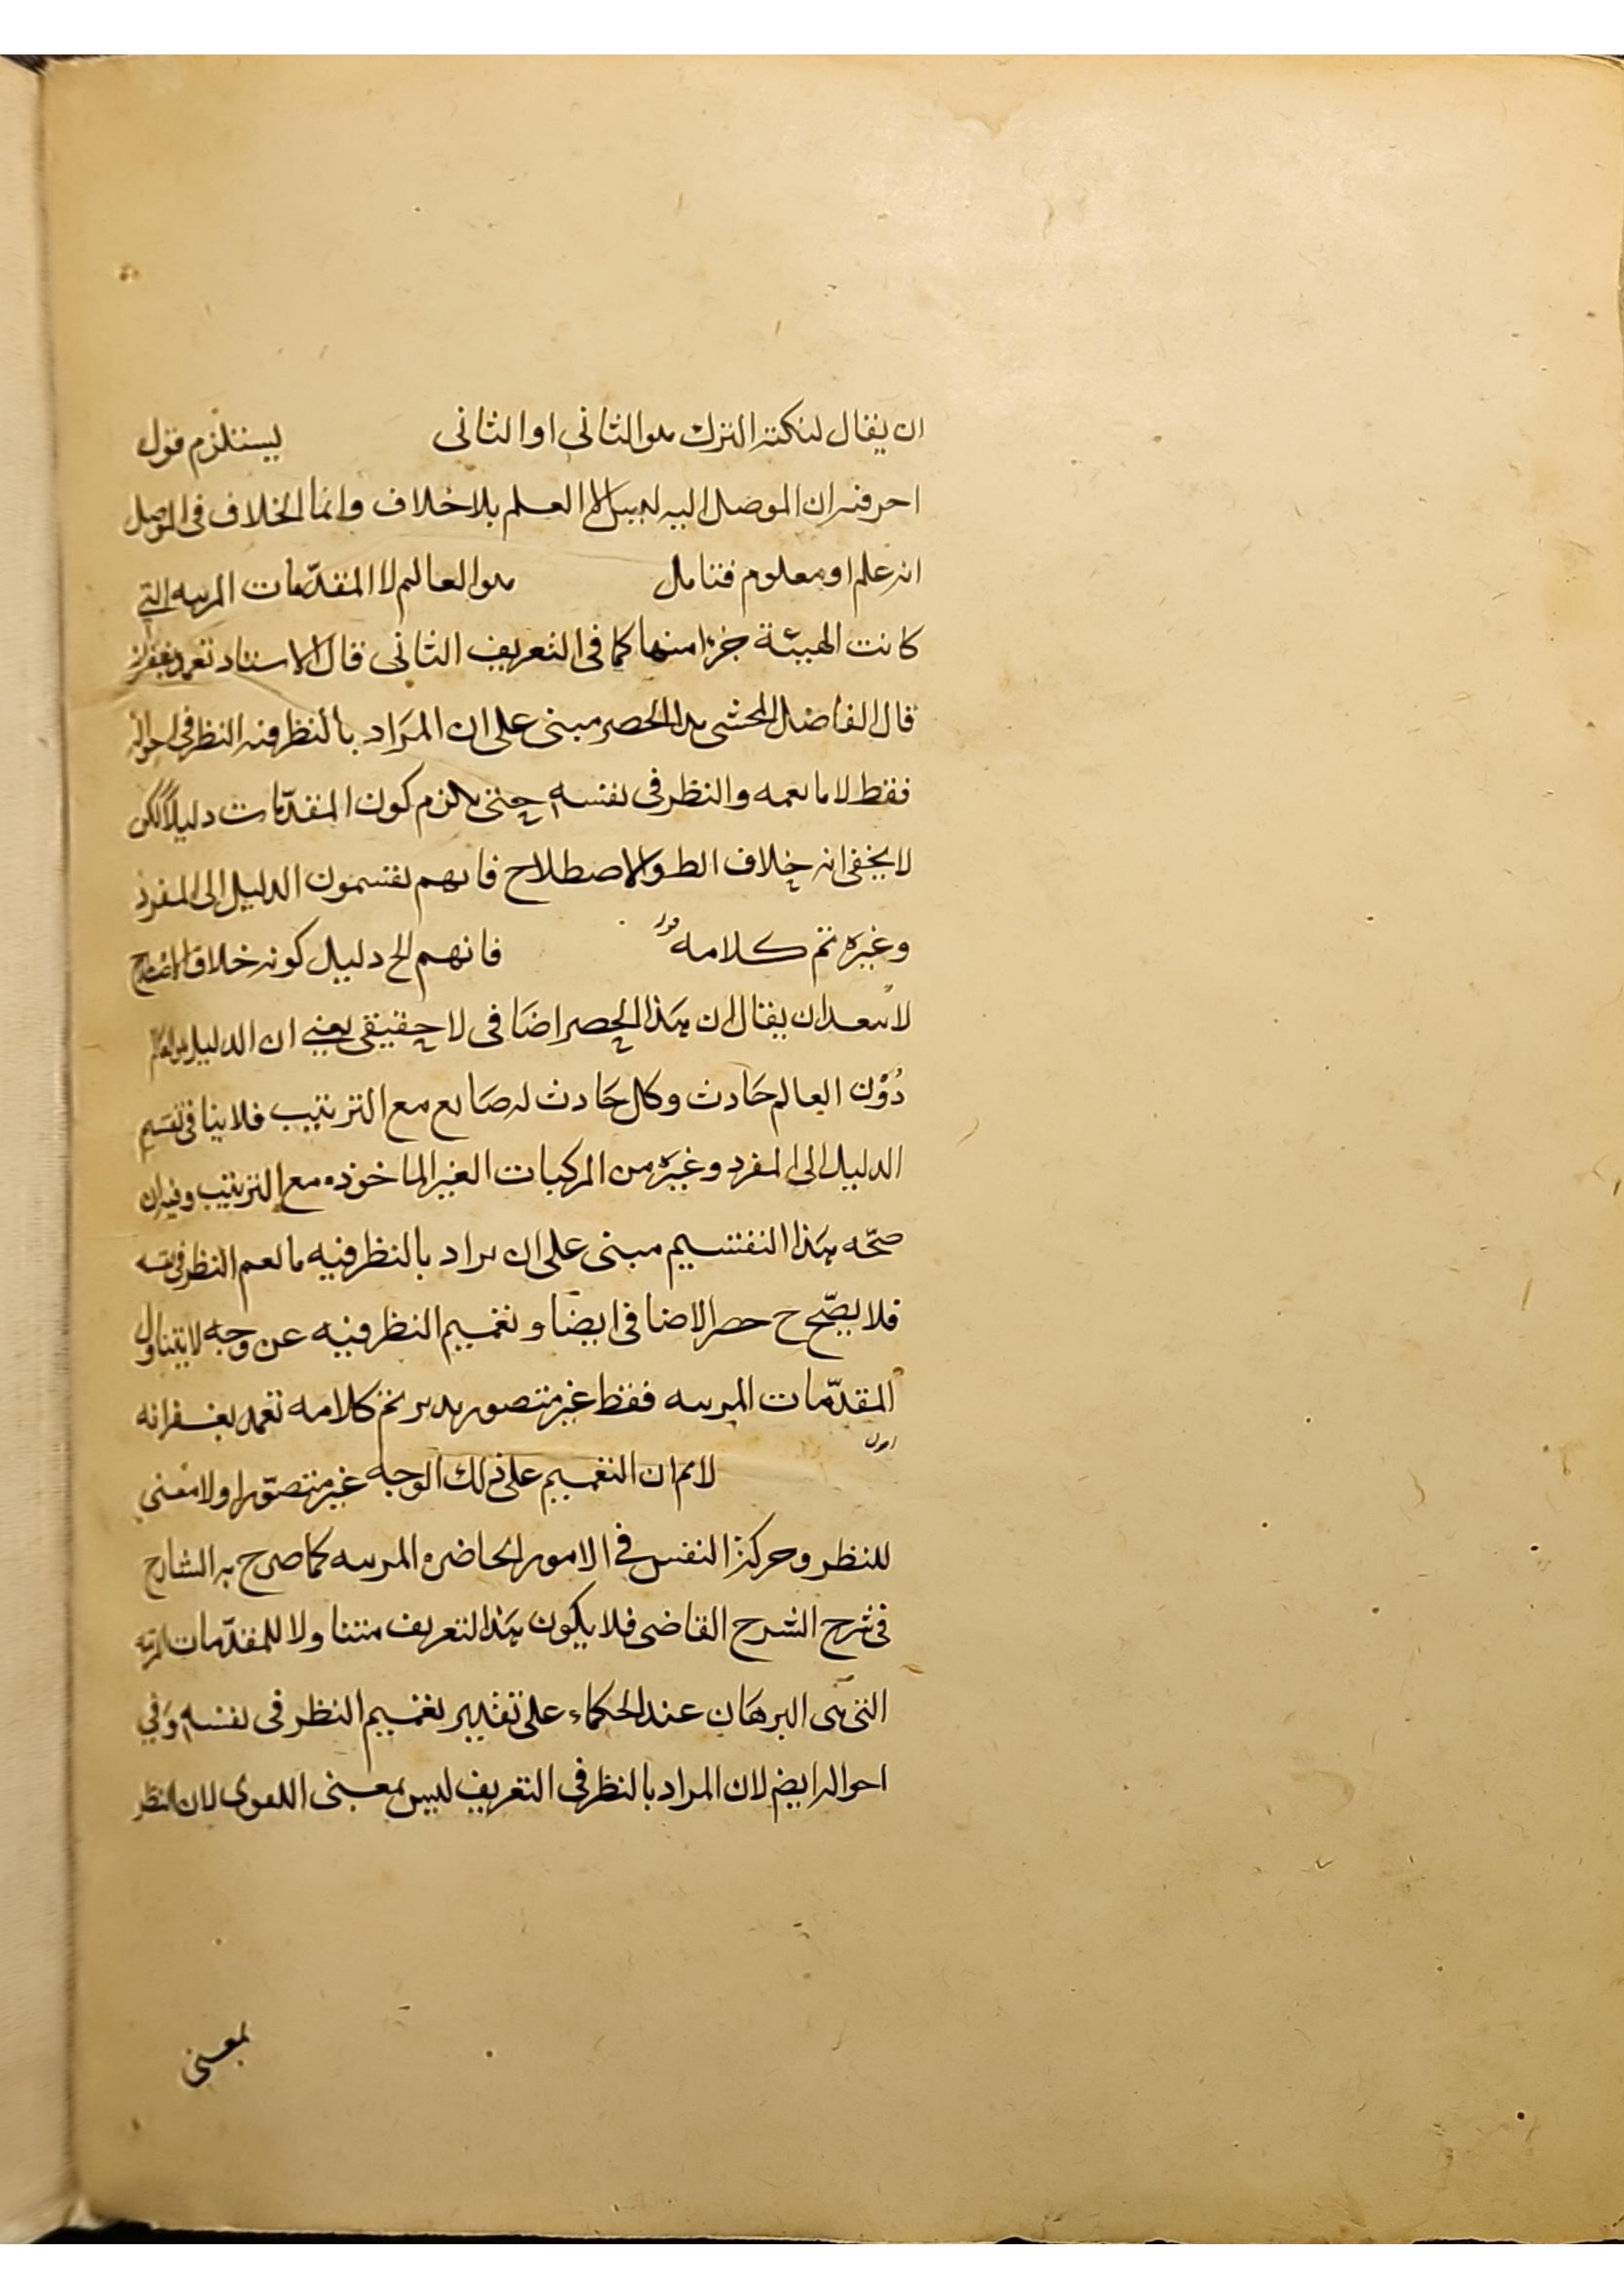 ان يقال لنكتة الترك هو الثانى او الثانى يستلزم قول
احر فيه ان الموصل اليه ليس الا العلم بلا خلاف وانما الخلاف فى الموصل
انه علم او معلوم فتامل هو العالم لا المقدمات المرتبه التى
كانت الهيئة جزا منها كما فى التعريف الثانى قال الاستاد تغمد بغفرانه
قال الفاضل المحشى هذا الحصر مبنى على ان المراد بالنظر فيه النظر فى احواله
فقط لا ما يعمه والنظر فى نفسه حتى يلزم كون المقدمات دليلا لكن
لا يخفى انه خلاف الظ والاصطلاح فانهم يقسمون الدليل الى المفرد
وغيره تم كلامه قوله فانهم الخ دليل كونه خلاف الاصطلاح
لا يبعد ان يقال ان هذا الحصر اضافى لا حقيقى يعنى ان الدليل هو العالم
دون العالم حادث وكل حادث له صانع مع الترتيب فلا ينافى تقسيم
الدليل الى المفرد وغيره من المركبات الغير الماخوذه مع الترتيب وفيه ان
صحه هذا التقسيم مبنى على ان يراد بالنظر فيه ما يعم النظر فى نفسه
فلا يصح ح حصر الاضافى ايضا وتعميم النظر فيه عن وجه لا يتناول
المقدمات المرتبه فقط غير متصور تدبر تم كلامه تغمد بغفرانه
اقول
لا نم ان التعميم على ذلك الوجه غير متصور اولا معنى
للنظر وحركة النفس فى الامور الحاضره المرتبه كما صرح به الشارح
فى شرح الشرح القاضى فلا يكون هذا التعريف متناولا للمقدمات المرتبه
التى هى البرهان عند الحكماء على تقدير تعميم النظر فى نفسه وفى
احواله ايضا لان المراد بالنظر فى التعريف ليس بمعنى اللغوى لان النظر
بمعنى